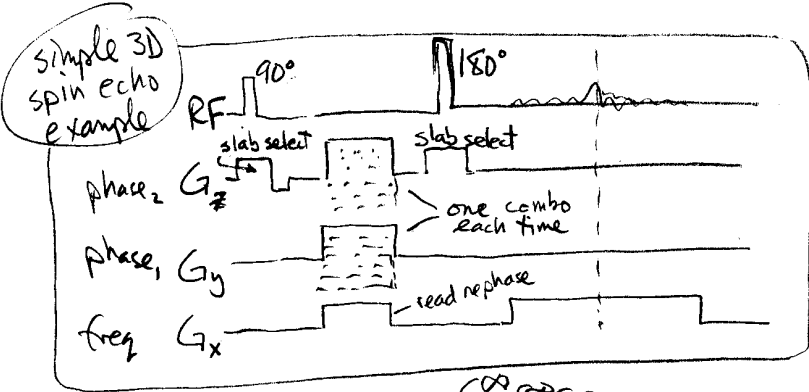 simple 3D
spin echo
example
RF
90°
180°
slab select
slab select
phase₂ Gz
one combo
each time
phase₁ Gy
read rephase
freq Gx